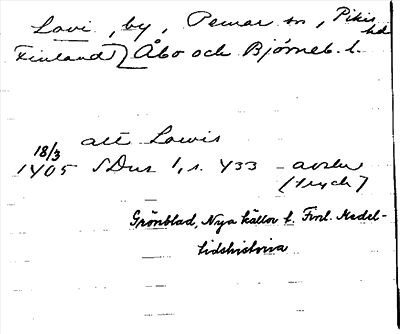 Lavi, by, Pemar sn, Pikis hd
Finland) Åbo och Björneb. l.
att Lawis
18/3
1405 SDns 1, s. 433 avskr
(tryck)
Grönblad, Nya källor t. Finl. Medel-
tidshistoria